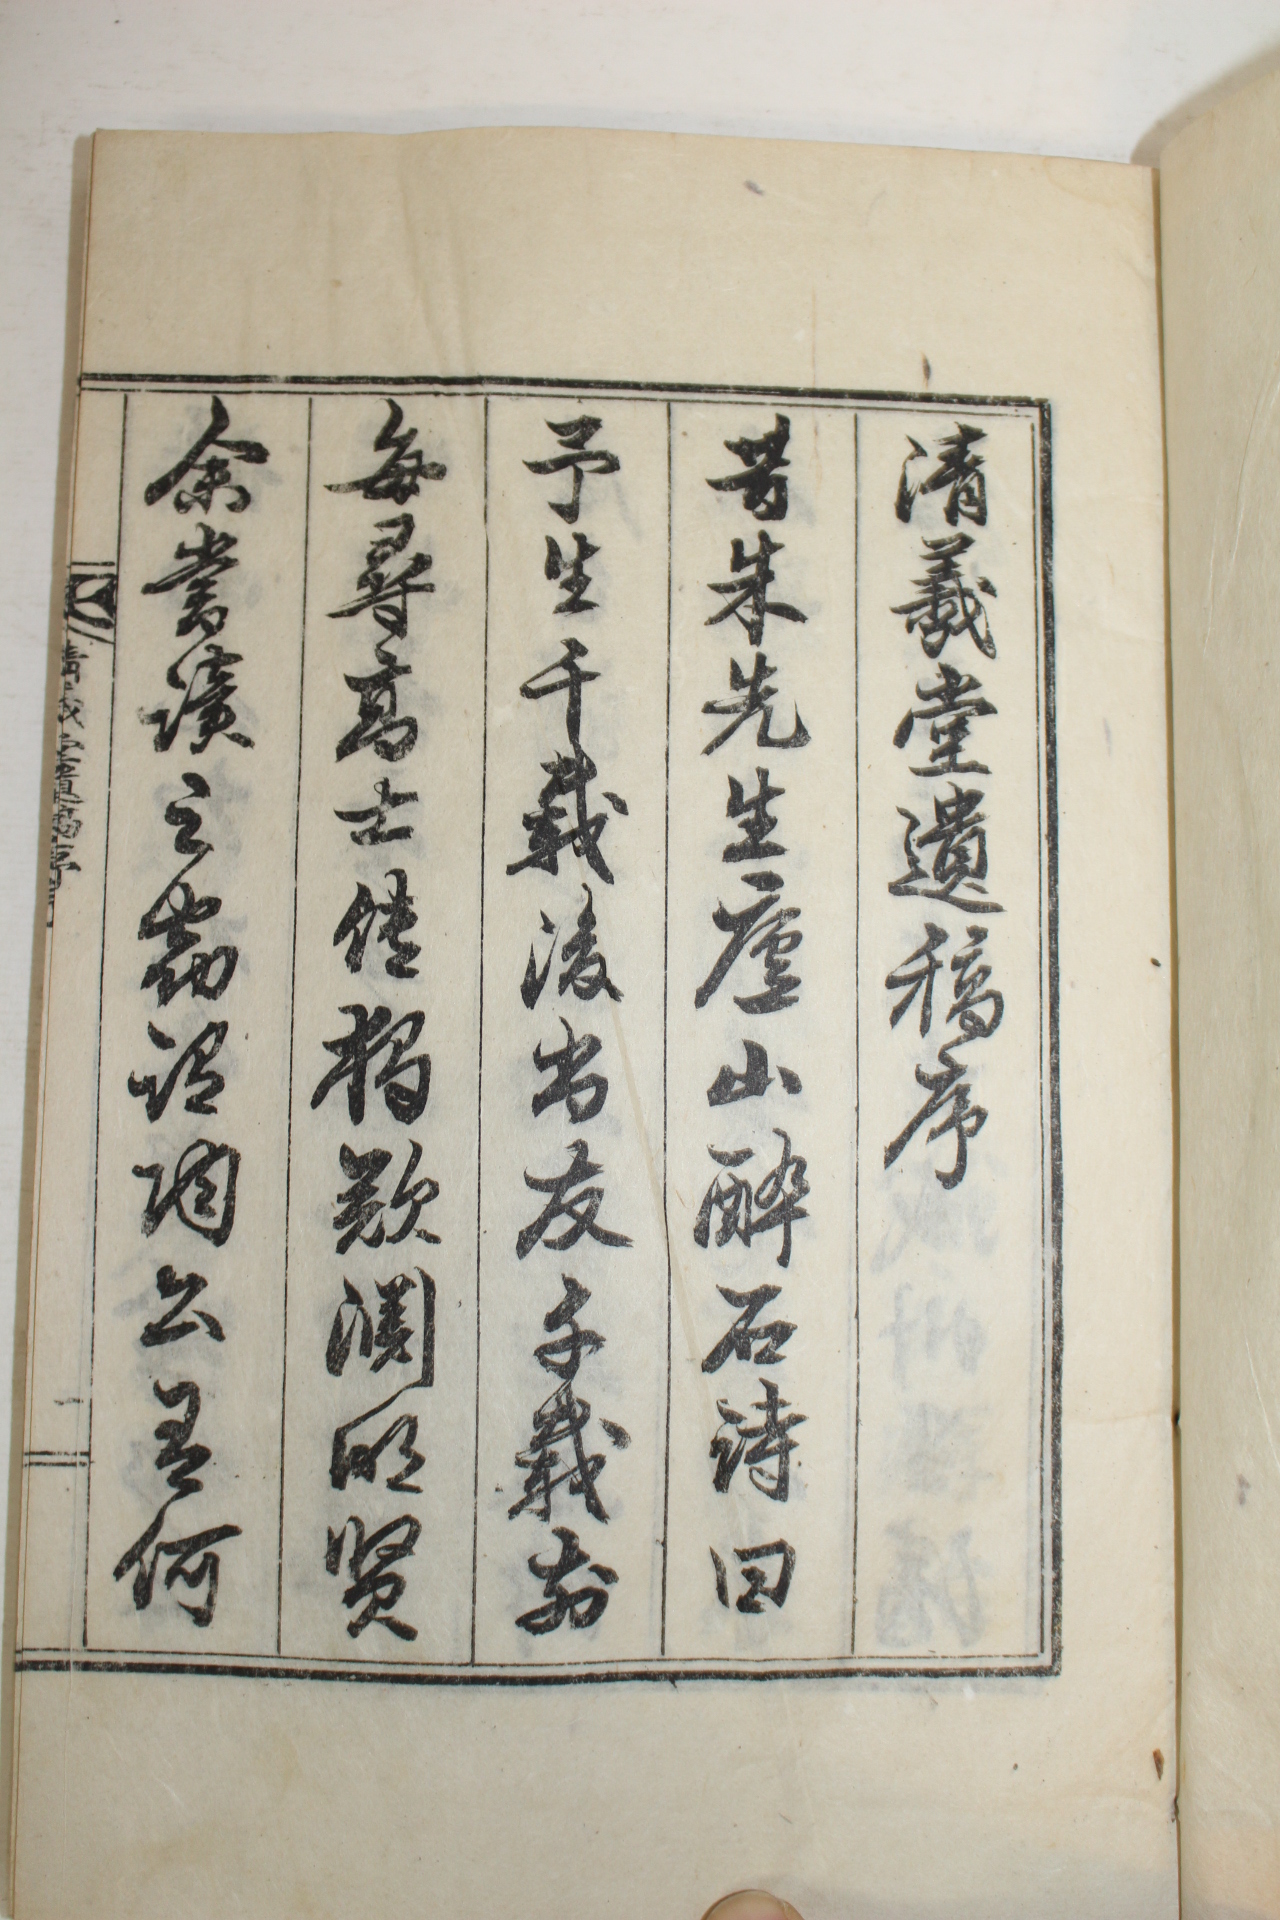 清義堂遺稿序
昔朱先生廬山醉石詩曰
予生千載後尙友千載前
每尋高士傳獨歎淵明賢
余嘗讀之竊謂陶公是何
清義堂遺稿序
一